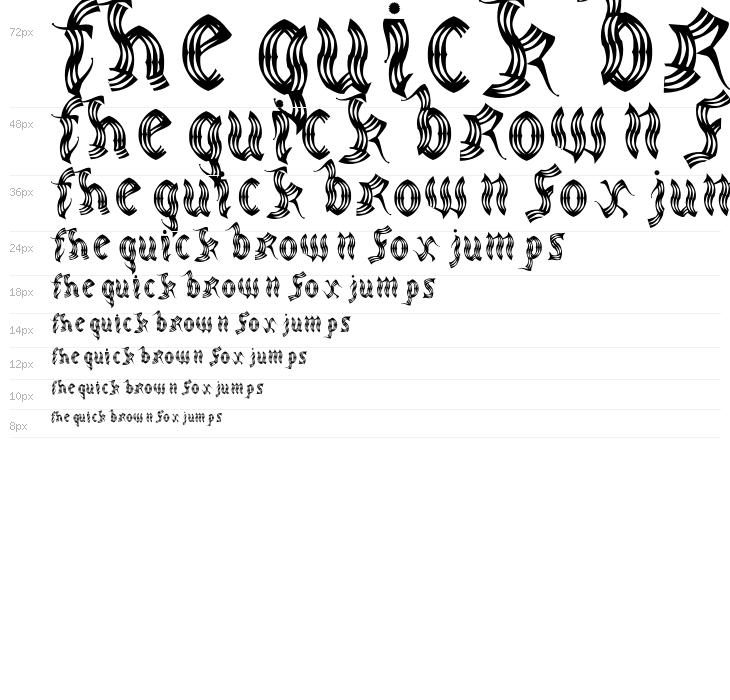 72px the quick br
48px the quick brown f
36px the quick brown fox jum
24px the quick brown fox jumps
18px the quick brown fox jumps
14px the quick brown fox jumps
12px the quick brown fox jumps
10px the quick brown fox jumps
8px the quick brown fox jumps